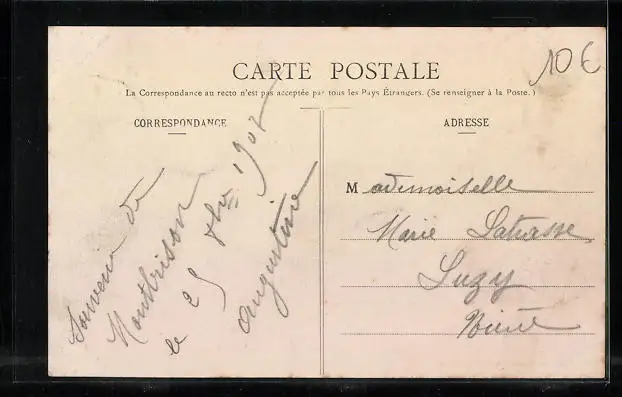 10€
CARTE POSTALE
La Correspondance au recto n'est pas acceptée par tous les Pays Étrangers. (Se renseigner à la Poste.)
CORRESPONDANCE
Souvenir de
Montbrison
le 25 1907
Augustine
ADRESSE
Mademoiselle
Marie
Luzy